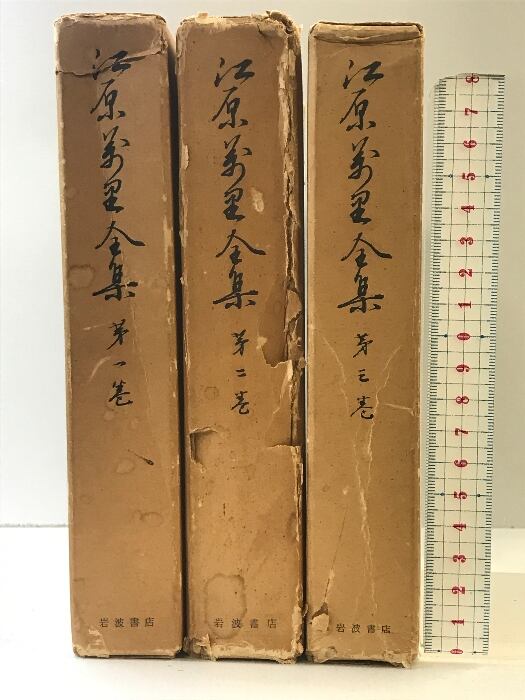 江原萬里全集 第一巻
岩波書店
江原萬里全集 第二巻
岩波書店
江原萬里全集 第三巻
岩波書店
8
7
6
5
4
3
2
1
0
9
8
7
6
5
4
3
2
1
0